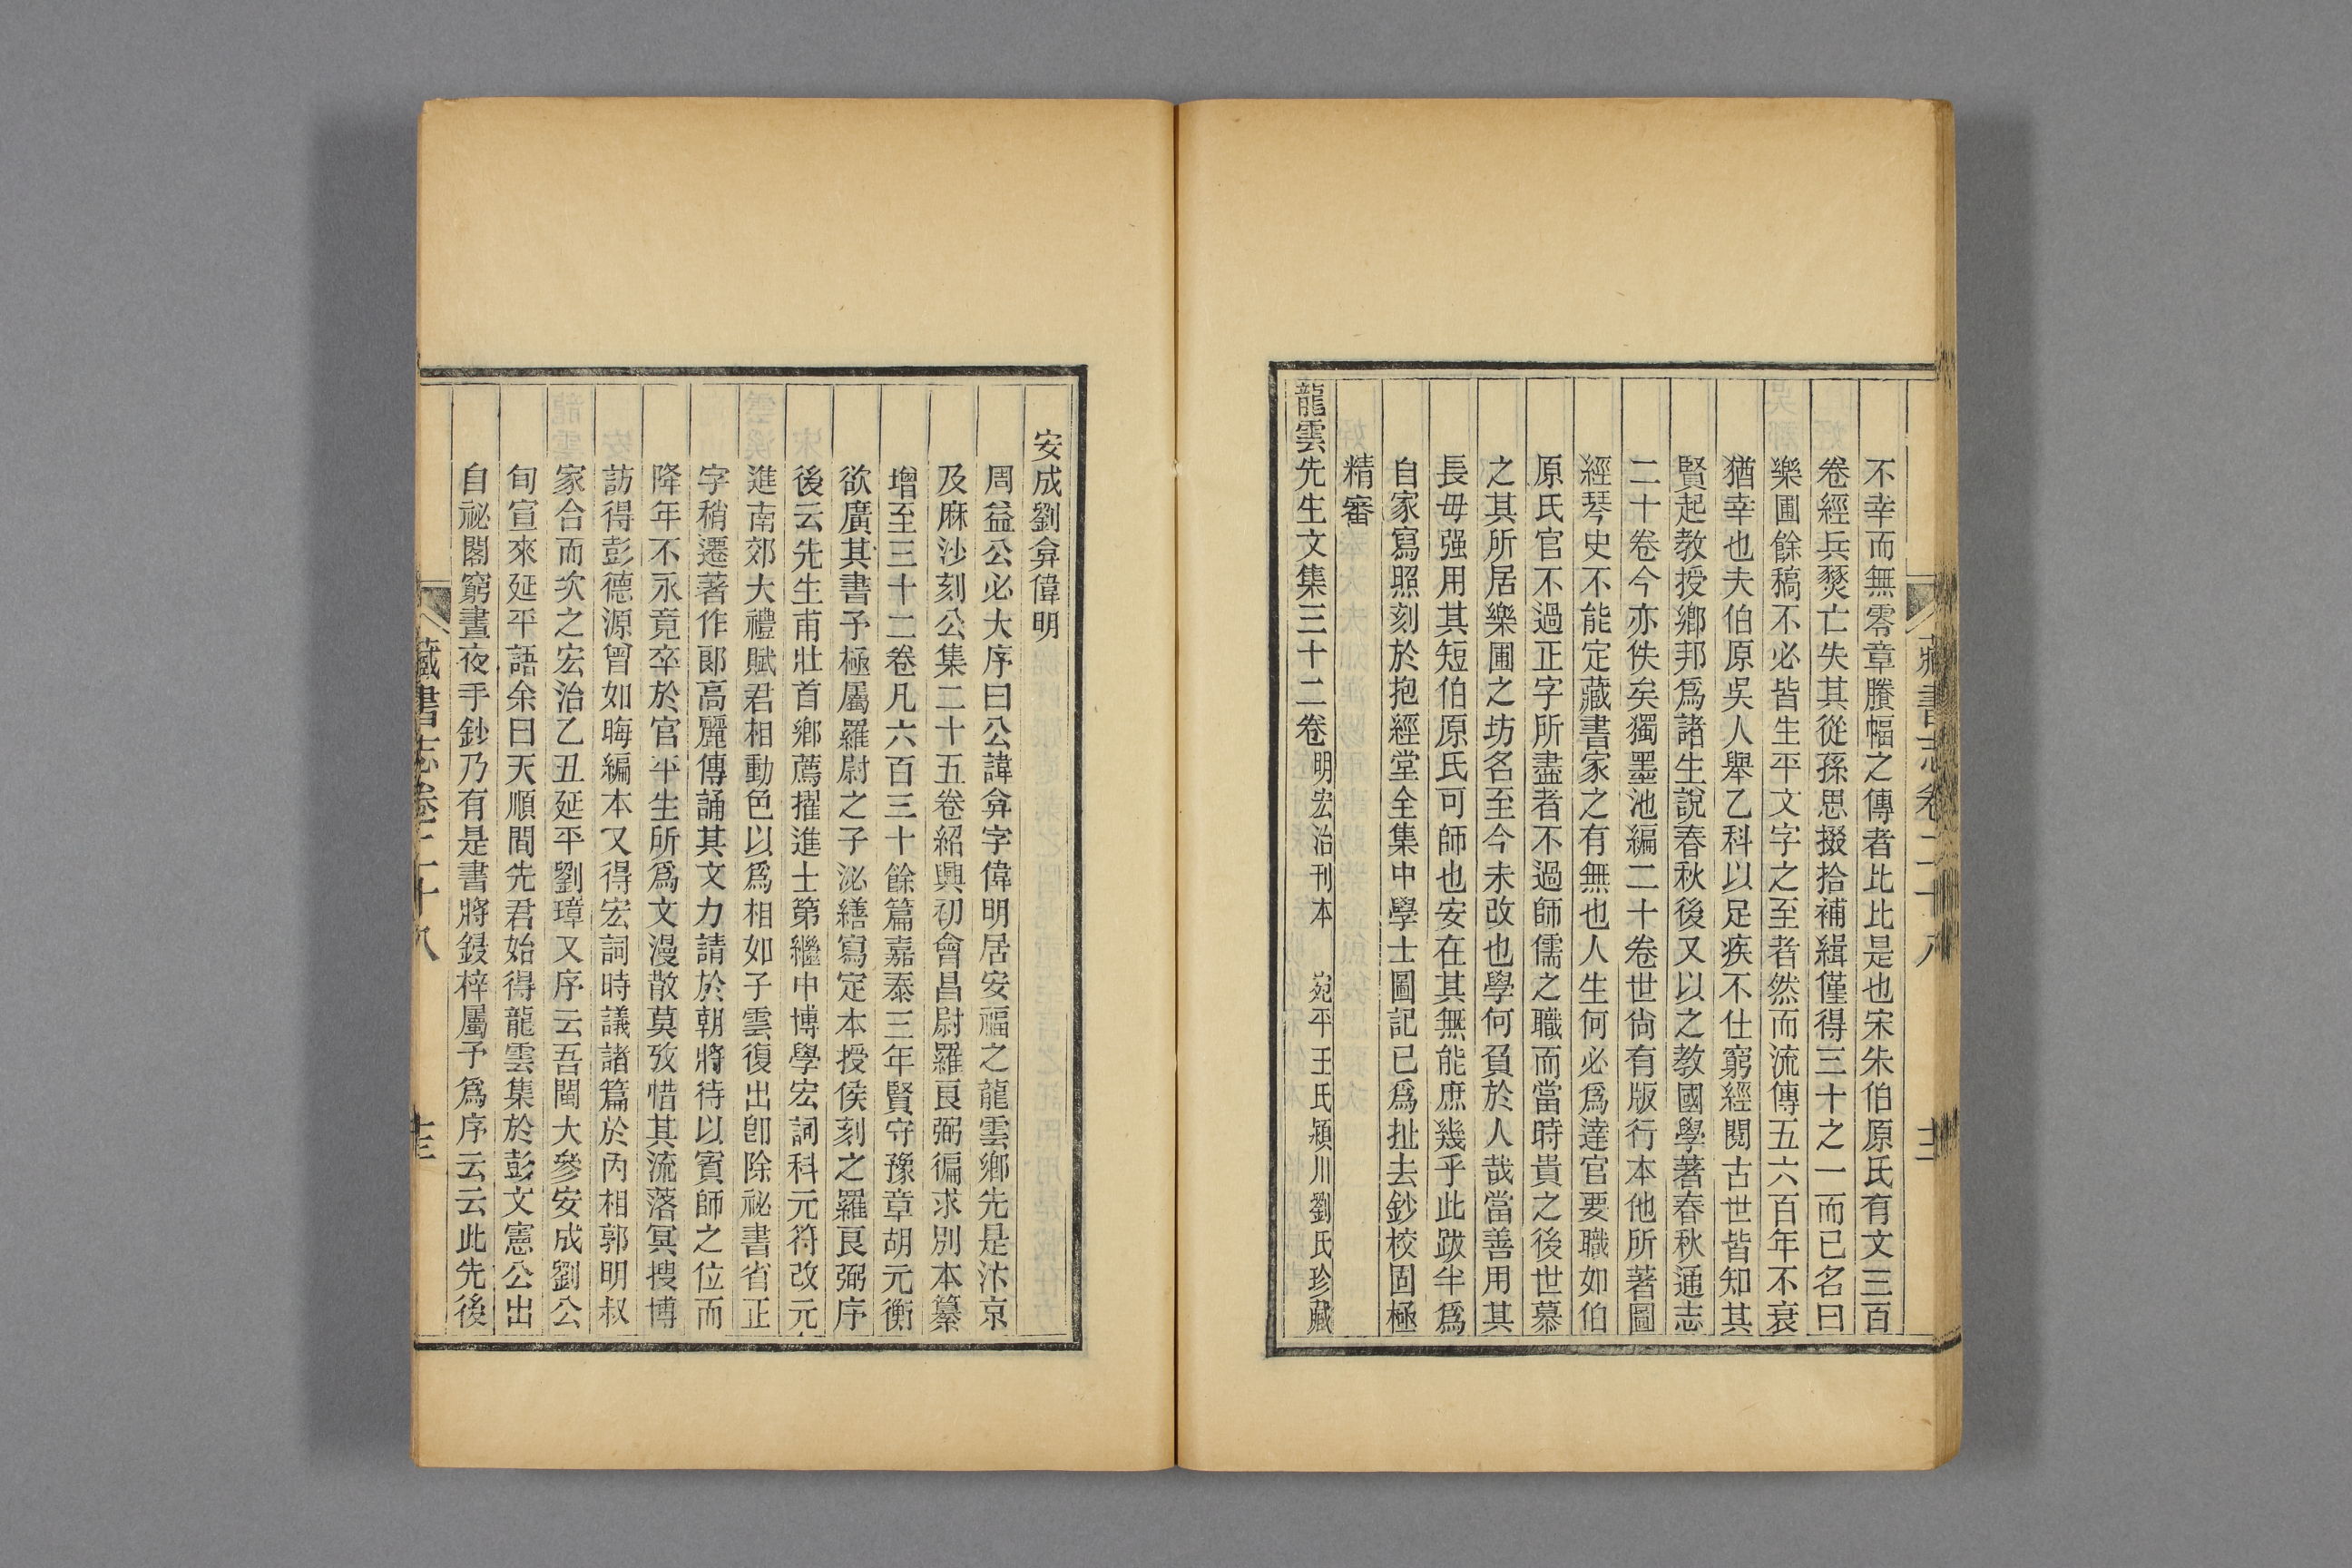 藏書志卷二十八
不幸而無零章賸幅之傳者比比是也宋朱伯原氏有文三百
卷經兵燹亡失其從孫思掇拾補緝僅得三十之一而已名曰
樂圃餘稿不必皆生平文字之至者然而流傳五六百年不衰
猶幸也夫伯原吳人舉乙科以足疾不仕窮經閱古世皆知其
賢起教授鄉邦爲諸生說春秋後又以之教國學著春秋通志
二十卷今亦佚矣獨墨池編二十卷世尙有版行本他所著圖
經琴史不能定藏書家之有無也人生何必爲達官要職如伯
原氏官不過正字所盡者不過師儒之職而當時貴之後世慕
之其所居樂圃之坊名至今未改也學何負於人哉當善用其
長毋强用其短伯原氏可師也安在其無能庶幾乎此跋半爲
自家寫照刻於抱經堂全集中學士圖記已爲扯去鈔校固極
精審
龍雲先生文集三十二卷 明宏治刊本 宛平王氏潁川劉氏珍藏
安成劉弇偉明
周益公必大序曰公諱弇字偉明居安福之龍雲鄉先是汴京
及麻沙刻公集二十五卷紹興初會昌尉羅良弼徧求別本纂
增至三十二卷凡六百三十餘篇嘉泰三年賢守豫章胡元衡
欲廣其書予極屬羅尉之子泌繕寫定本授侯刻之羅良弼序
後云先生甫壯首鄉薦擢進士第繼中博學宏詞科元符改元
進南郊大禮賦君相動色以爲相如子雲復出卽除祕書省正
字稍遷著作郞高麗傳誦其文力請於朝將待以賓師之位而
降年不永竟卒於官平生所爲文漫散莫攷惜其流落冥搜博
訪得彭德源曾如晦編本又得宏詞時議諸篇於丙相郭明叔
家合而次之宏治乙丑延平劉璋又序云吾閩大參安成劉公
旬宣來延平語余曰天順間先君始得龍雲集於彭文憲公出
自祕閣窮晝夜手鈔乃有是書將鋟梓屬予爲序云云此先後
藏書志卷二十八